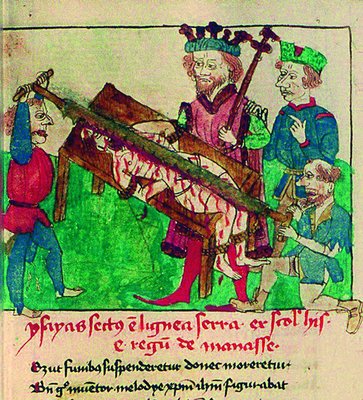 ysayas sectus ē lignea serra. ex scol. his
e. regū de manasse.
Ozut funibus suspenderetur donec moreretur
Hn̄ gͦ inuētor melodye xpm̄ ihm̄ figurabat